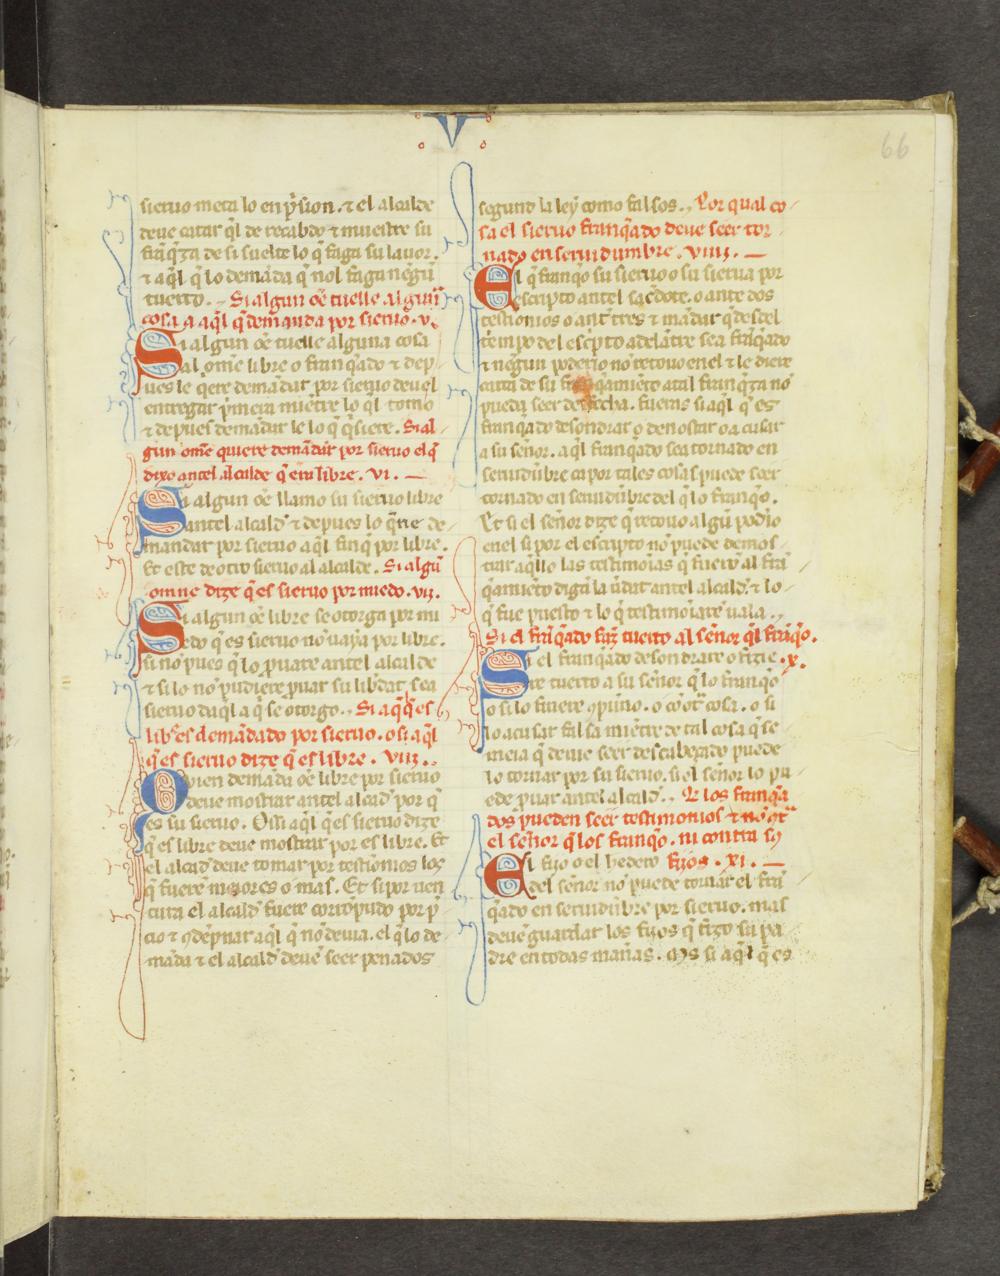 V
66
sieruo meta lo en p̃sion. ⁊ el alcalde
deue catar q̃l de recabdo ⁊ muestre su
frãq̃za de si suelte lo q̃ faga su lauor.
⁊ aq̃l q̃ lo demãda q̃ nol faga nẽgũ
tuerto. Si algun oẽ tuelle alguna
cosa a aq̃l q̃ demanda por sieruo. v.
Si algun oẽ tuelle alguna cosa
al omẽ libre o franq̃ado ⁊ dep
ues le q̃ere demãdar por sieruo deuel
entregar p̃mera miẽtre lo q̃l tomo
⁊ depues demãdar le lo q̃ q̃siere. Si al
gun omẽ quiere demãdar por sieruo el q̃
dixo antel alcalde q̃ era libre. vi.
Si algun oẽ llamo su sieruo libre
antel alcald̃ ⁊ depues lo q̃ere de
mandar por sieruo aq̃l finq̃ por libre.
Et este de otro sieruo al alcalde. Si algũ
omne dize q̃ es sieruo por miedo. vij.
Si algun oẽ libre se otorga por mi
edo q̃ es sieruo nõ uaya por libre.
si no pues q̃ lo p̃uare antel alcalde
⁊ si lo nõ pudiere p̃uar su lib̃dat, sea
sieruo daq̃l a q̃ se otorgo. Si aq̃ q̃ es
lib̃ es demãdado por sieruo. o si aq̃l
q̃ es sieruo dize q̃ es libre. viij.
Quien demãda oẽ libre por sieruo
deue mostrar antel alcad̃ por q̃
es su sieruo. Ossi aq̃l q̃ es sieruo dize
q̃ es libre deue mostrar por es libre. Et
el alcad̃ deue tomar por testĩonios los
q̃ fuerẽ meiores o mas. Et si por uen
tura el alcald̃ fuere corrõpudo por p̃
cio ⁊ 9dẽpnar aq̃l q̃ nõ deuia. el q̃ lo de
mãda ⁊ el alcald̃ deuẽ seer penados
segund la ley como falsos. Por qual co
sa el sieruo franq̃ado deue seer tor
nado en seruidumbre. viiij.
El q̃ franqo su sieruo o su sierua por
escripto antel sac̃dote. o ante dos
testĩonios o ant̃ tres ⁊ mãdar q̃ desdel
tẽmpo del esc̃pto adelãtre sea frãq̃ado
⁊ nẽgun poderio nõ retouo en el ⁊ le diere
carta de su franq̃amiẽto atal franq̃za nõ
pueda seer desfecha. fueras si aq̃l q̃ es
franq̃ado desondrar o denostar o acusar
a su señor. aq̃l franq̃ado sea tornado en
seruidũbre ca por tales cosas puede seer
tornado en seruidũbre del q̃ lo franqo.
Et si el señor dize q̃ retouo algũ podio
en el si por el escripto nõ puede demos
trar aq̃llo las testimoñas q̃ fuerõ al frã
q̃amiẽto digã la ũdat antel alcald̃. ⁊ lo
q̃ fue puesto ⁊ lo q̃ testimoñare uala.
Si el frãq̃ado faz tuerto al señor q̃l frãqo.
Si el franq̃ado desondrare o fizie x.
re tuerto a su señor q̃ lo franqo
o si lo firiere cõ puño. o cõ ot̃ cosa. o si
lo acusar falsa miẽtre de tal cosa q̃ se
meia q̃ deue seer descabeçado puede
lo tornar por su sieruo. si el señor lo pu
ede p̃uar antel alcald̃. Q̃ los franq̃a
dos pueden seer testimonios ⁊ nõ q̃t
el señor q̃ los franqo. ni contra sus
fijos. xi.
El fijo o el hedero
del señor nõ puede tornar el frã
q̃ado en seruidũbre por sieruo. mas
deue guardar los fuos q̃ fizo su pa
dre en todas mañas. Mas si aq̃l q̃ es